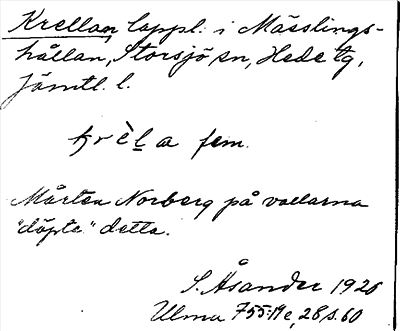 Krellan, lappl. i Mässlings-
hållan, Storsjö sn, Hede tg,
Jämtl. l.
krèl̲a fem.
Mårten Norberg på vallarna
"döpte" detta.
S. Åsander 1926
Ulma 755:19c, 28, s. 60